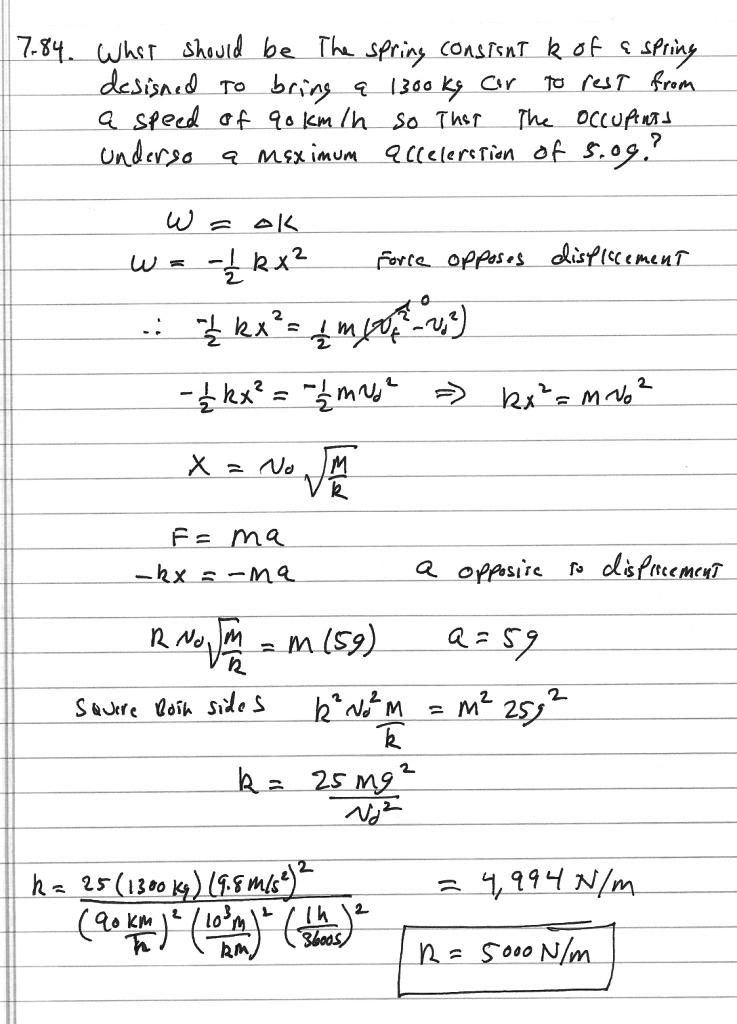 7-84. What should be the spring constant k of a spring
designed to bring a 1300 kg car to rest from
a speed of 90 km/h so that the occupants
undergo a maximum acceleration of 5.0g.?
W = ΔK
W = -1/2 kx² Force opposes displacement
∴ -1/2 kx² = 1/2 m(v_f² - v_0²) 0
-1/2 kx² = -1/2 mv_0² ⇒ kx² = mv_0²
x = v_0 √(m/k)
F = ma
-kx = -ma a opposite to displacement
k v_0 √(m/k) = m(5g) a = 5g
Square both sides k² v_0² m / k = m² 25g²
k = 25 mg² / v_0²
k = 25(1300 kg)(9.8 m/s²)² / (90 km/h)² (10³ m/km)² (1h/3600s)² = 4,994 N/m
k = 5000 N/m